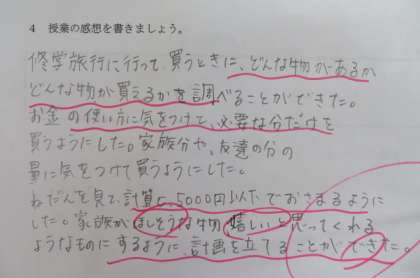 4 授業の感想を書きましょう。
修学旅行に行って、買うときに、どんな物があるか
どんな物が買えるかを調べることができた。
お金の使い方に気をつけて、必要な分だけを
買うようにした。家族分や、友達の分の
量に気をつけて買うようにした。
ねだんを見て、計算し、5000円以下でおさまるように
した。家族がほしそうな物、嬉しいと思ってくれる
ようなものにするように、計画を立てることができた。